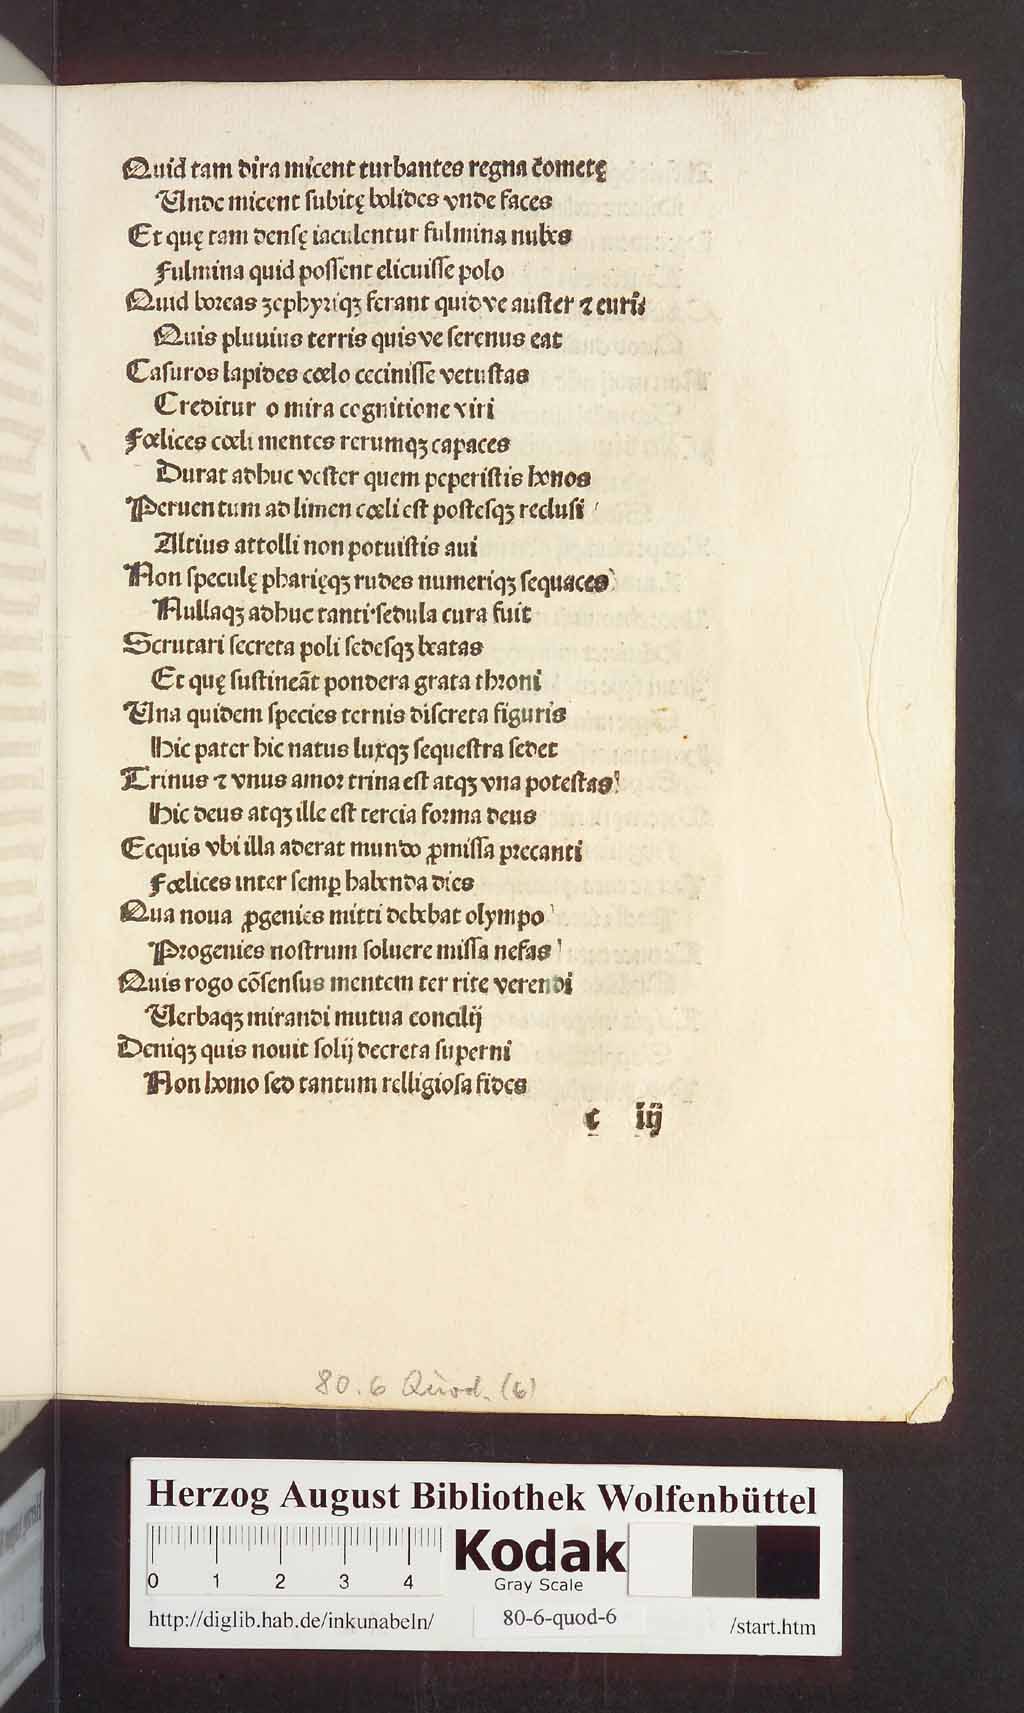 Quid tam dira micent turbantes regna cometę
Unde micent subitę bolides vnde faces
Et quę tam densę iaculentur fulmina nubes
Fulmina quid possent elicuisse polo
Quid boreas zephyriqȝ ferant quidve auster ⁊ euri
Quis pluuius terris quisve serenus eat
Casuros lapides cœlo cecinisse vetustas
Creditur o mira cognitione viri
Fœlices cœli mentes rerumqȝ capaces
Durat adhuc vester quem peperistis honos
Peruentum ad limen cœli est postesqȝ reclusi
Altius attolli non potuistis aui
Non speculę pharięqȝ rudes numeriqȝ sequaces
Nullaqȝ adhuc tanti sedula cura fuit
Scrutari secreta poli sedesqȝ beatas
Et quę sustineāt pondera grata throni
Una quidem species ternis discreta figuris
Hic pater hic natus luxqȝ sequestra sedet
Trinus ⁊ vnus amor trina est atqȝ vna potestas
Hic deus atqȝ ille est tercia forma deus
Ecquis vbi illa aderat mundo ꝓmissa precanti
Fœlices inter semꝑ habenda dies
Qua noua ꝓgenies mitti debebat olympo
Progenies nostrum soluere missa nefas
Quis rogo cōsensus mentem ter rite verendi
Uerbaqȝ mirandi mutua concilij
Deniqȝ quis nouit solij decreta superni
Non homo sed tantum relligiosa fides
c iij
80.6 Quod. (6)
Herzog August Bibliothek Wolfenbüttel
0 1 2 3 4
Kodak
Gray Scale
http://diglib.hab.de/inkunabeln/ 80-6-quod-6 /start.htm